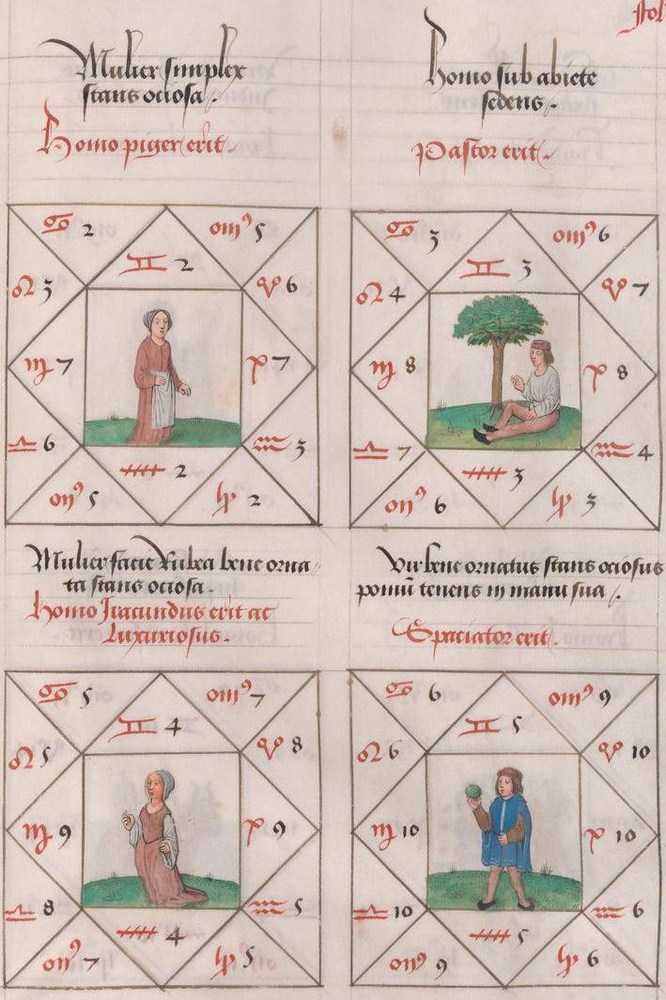 Mulier simplex
stans ociosa.
Homo piger erit.
Homo sub abiete
sedens.
Pastor erit.
♋ 2 om⁹ 5
♊ 2
♌ 3 ♈ 6
♍ 7 p 7
♎ 6 ♒ 3
2
om⁹ 5 ♑ 2
♋ 3 om⁹ 6
♊ 3
♌ 4 ♈ 7
♍ 8 p 8
♎ 7 ♒ 4
3
om⁹ 6 ♑ 3
Mulier facie Rubea bene orna
ta stans ociosa.
Homo Iracundus erit ac
Luxuriosus.
Vir bene ornatus stans ociosus
pomū tenens in manu sua.
Spaciator erit.
♋ 5 om⁹ 7
♊ 4
♌ 5 ♈ 8
♍ 9 p 9
♎ 8 ♒ 5
4
om⁹ 7 ♑ 5
♋ 6 om⁹ 9
♊ 5
♌ 6 ♈ 10
♍ 10 p 10
♎ 10 ♒ 6
5
om⁹ 9 ♑ 6